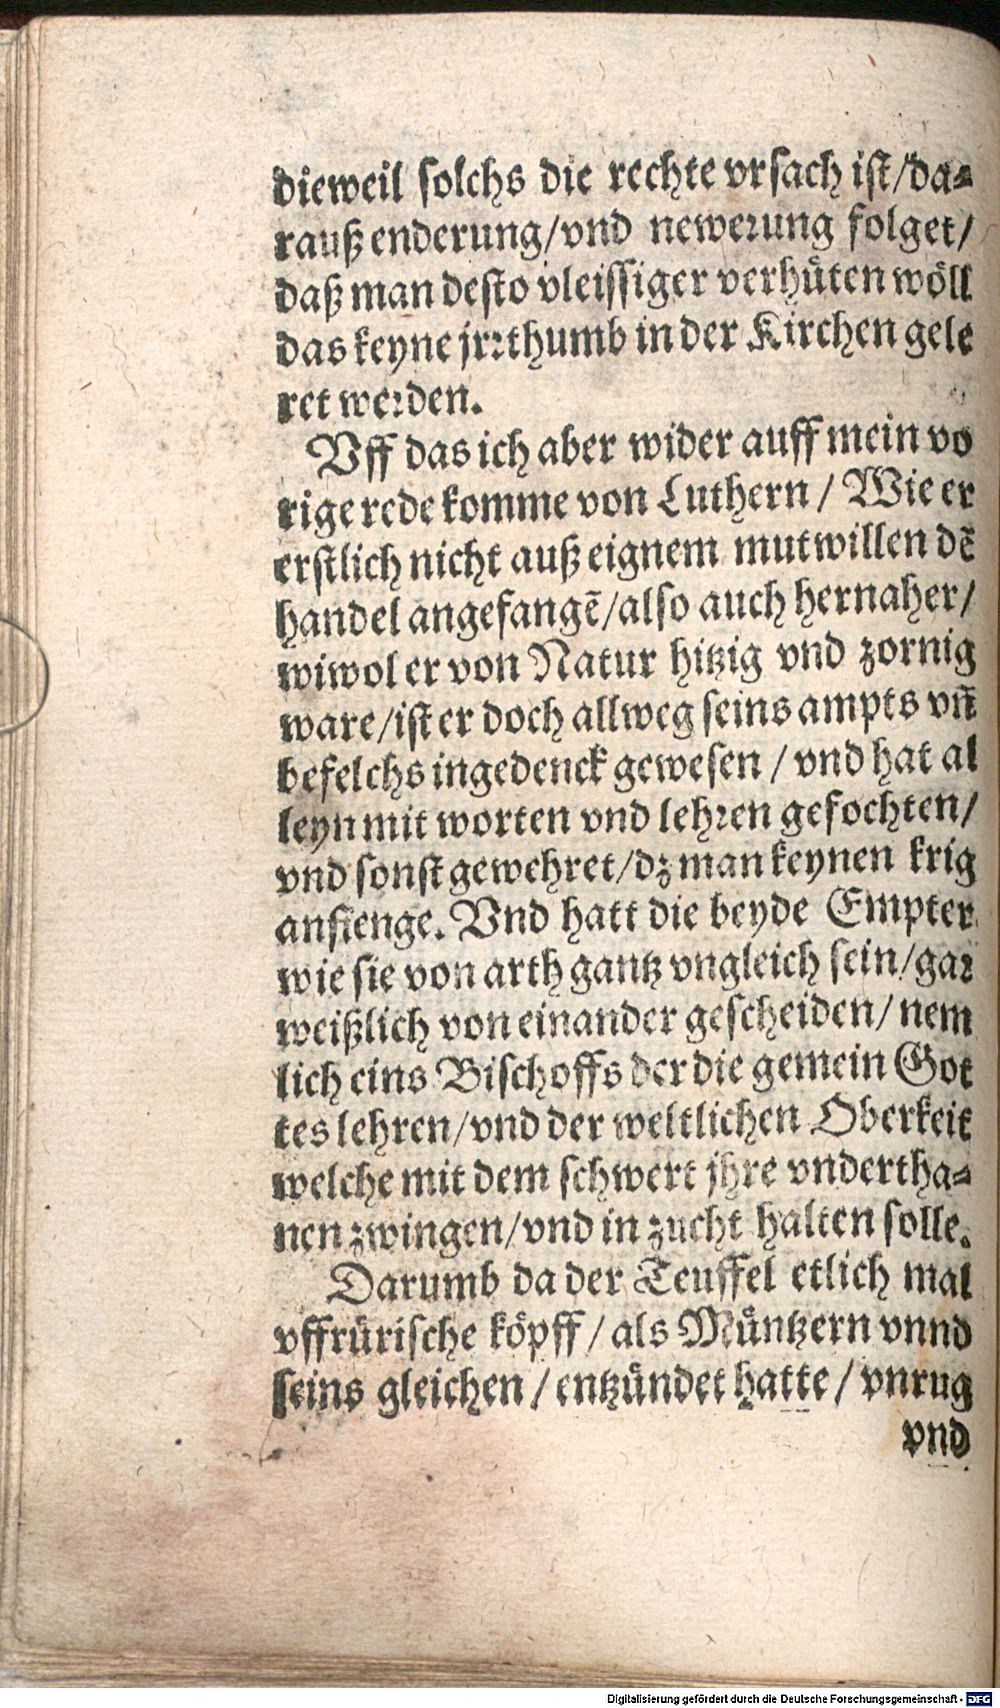 dieweil solchs die rechte vrsach ist/da⸗
rauß enderung/vnd newerung folget/
daß man desto vleissiger verhüten wöll
das keyne jrrthumb in der Kirchen gele
ret werden.
Vff das ich aber wider auff mein vo
rige rede komme von Luthern / Wie er
erstlich nicht auß eignem mutwillen dẽ
handel angefangẽ/also auch hernaher/
wiwol er von Natur hitzig vnd zornig
ware/ist er doch allweg seins ampts vñ
befelchs ingedenck gewesen / vnd hat al
leyn mit worten vnd lehren gefochten/
vnd sonst gewehret/dz man keynen krig
anfienge. Vnd hatt die beyde Empter
wie sie von arth gantz vngleich sein/gar
weißlich von einander gescheiden/ nem
lich eins Bischoffs der die gemein Got
tes lehren/vnd der weltlichen Oberkeit
welche mit dem schwert jhre vndertha⸗
nen zwingen/vnd in zucht halten solle.
Darumb da der Teuffel etlich mal
vffrürische köpff / als Müntzern vnnd
seins gleichen / entzündet hatte / vnrug
vnd
Digitalisierung gefördert durch die Deutsche Forschungsgemeinschaft - DFG